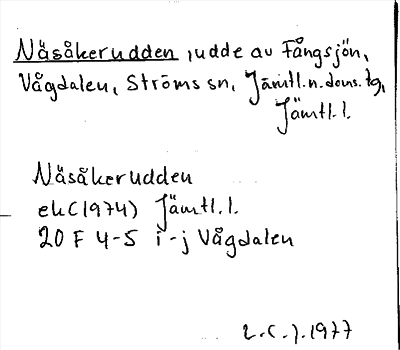 Näsåkerudden, udde av Fångsjön,
Vågdalen, Ströms sn, Jämtl. n. doms. tg,
Jämtl. l.
Näsåkerudden
ek (1974) Jämtl. l.
20 F 4-5 i-j Vågdalen
1977